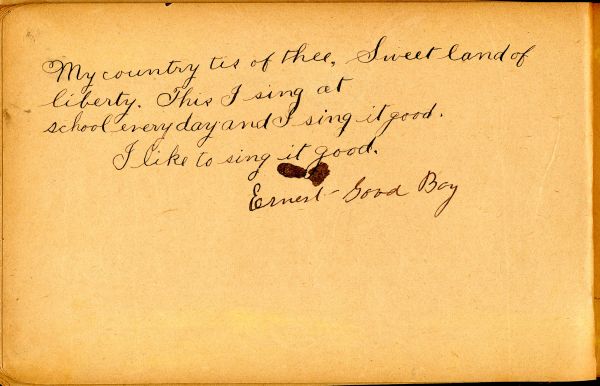 My country tis of thee, Sweet land of
liberty. This I sing at
school every day and I sing it good.
I like to sing it good.
Ernest Good Boy